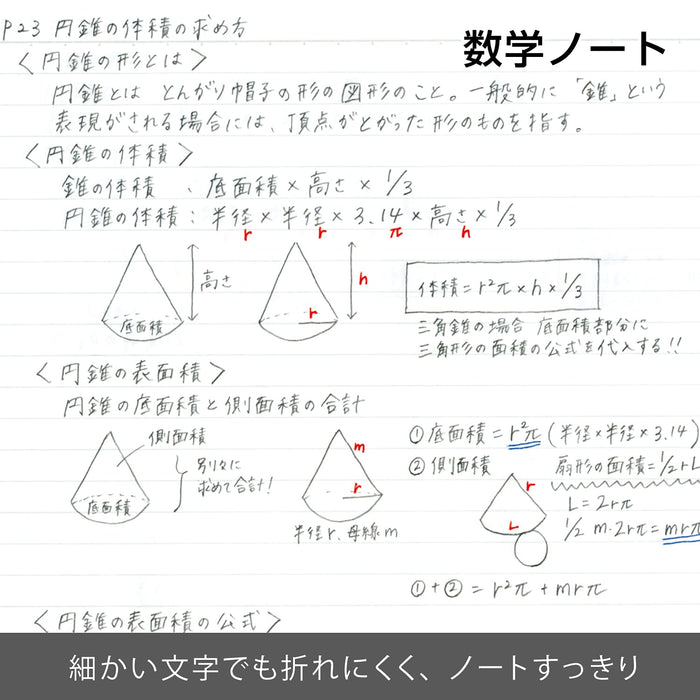 数学ノート
P23 円錐の体積の求め方
〈円錐の形とは〉
円錐とは とんがり帽子の形の図形のこと。一般的に「錐」という
表現がされる場合には、頂点がとがった形のものを指す。
〈円錐の体積〉
錐の体積 、底面積×高さ×1/3
円錐の体積:半径×半径×3.14×高さ×1/3
r r π h
高さ
底面積
h
r
体積=r²π×h×1/3
三角錐の場合 底面積部分に
三角形の面積の公式を代入する!!
〈円錐の表面積〉
円錐の底面積と側面積の合計
側面積
別々に
求めて合計!
底面積
m
r
半径r、母線m
①底面積=r²π(半径×半径×3.14)
②側面積 扇形の面積=1/2rL
r
L
L=2rπ
1/2 m・2rπ=mrπ
①+②=r²π+mrπ
〈円錐の表面積の公式〉
細かい文字でも折れにくく、ノートすっきり